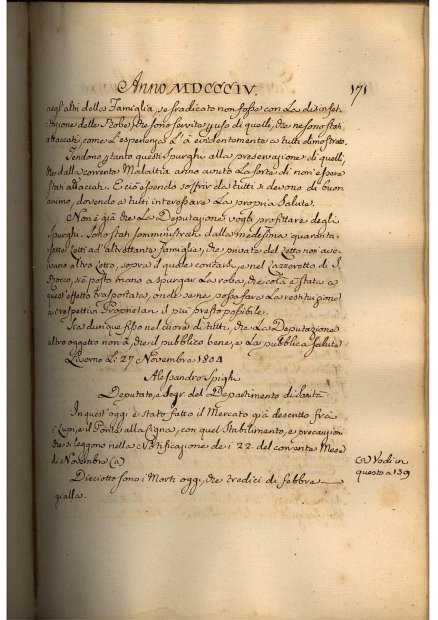 Anno MDCCCIV.
171
negl'altri della Famiglia, se sradicato non fosse con La disinfet-
-tazione delle Robe, che sono servite p uso di quelli, che ne sono stati
attaccati, come L'esperienza L'à evidentemente a tutti dimostrato.
Tendono p tanto questi Spurghi alla preservazione di quelli,
che dalla corrente Malattia anno avuto La sorte di non essere
stati attaccati. E ciò essendo soffrir da tutti si devono di buon
animo, dovendo a tutti interessare La propria Salute.
Non è già che La Deputazione voglia profittare degli
Spurghi. Sono stati somministrati dalla medesima quaranta-
sette Letti ad altrettante Famiglie, che private del Letto non ave-
vano altro Letto, sopra il quale coricarsi, e nel Lazzeretto di S.
Rocco, si è posto mano a spurgar La roba, che colà è stata a
quest'effetto trasportata, onde se ne possa fare La restituzione
a' rispettivi Proprietari il più presto possibile.
Sia dunque fisso nel cuore di tutti, che La Deputazione
altro oggetto non à, che il pubblico bene, e La pubblica Salute
Livorno Li 27 Novembre 1804
Alessandro Spighi
Deputato, e Segr. del Dipartimento di Sanità
In quest'oggi è stato fatto il Mercato già descritto fra
i Lupi, e il Ponte alla Cigna, con quel Stabilimento, e precauzioni
che si leggono nella Notificazione de i 22. del corrente Mese
di Novembre (a)
(a) Vedi in
questo a 139
Dieciotto sono i Morti oggi, che tredici di Febbre
gialla.